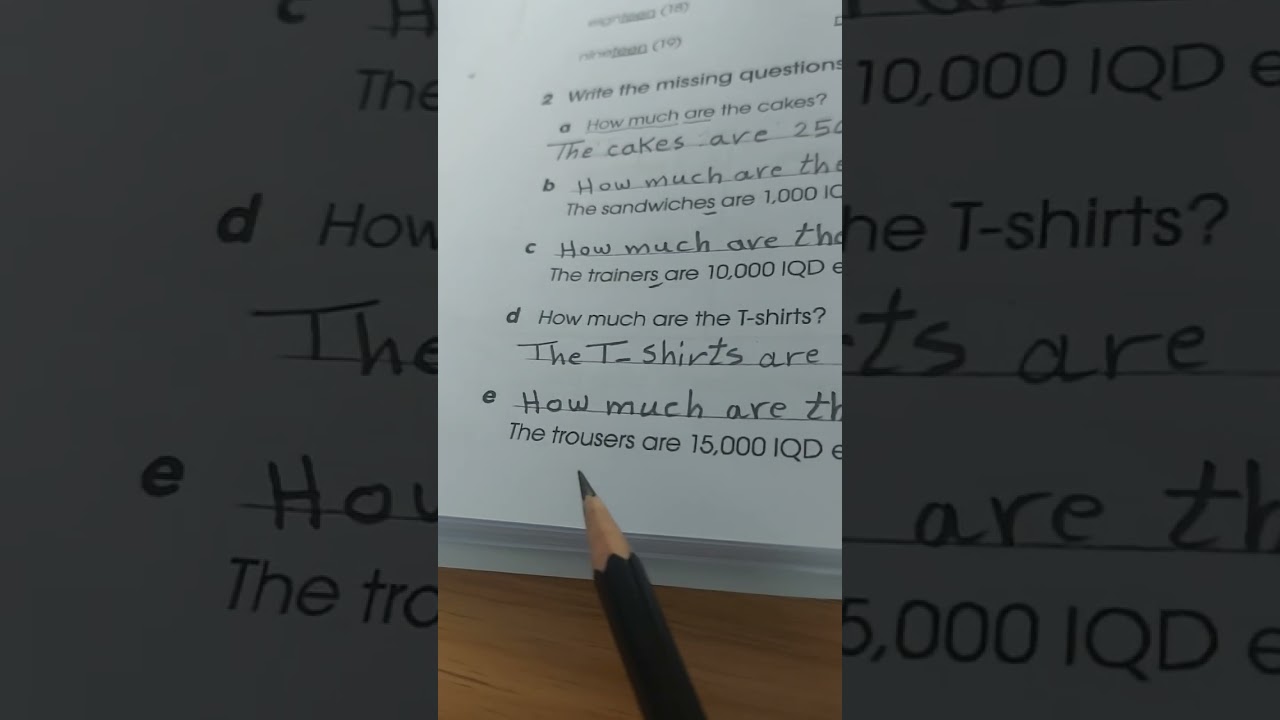 eighteen (18)
nineteen (19)
2 Write the missing questions
a How much are the cakes?
The cakes are 250
b How much are the
The sandwiches are 1,000
c How much are the
The trainers are 10,000 IQD
d How much are the T-shirts?
The T-shirts are
e How much are th
The trousers are 15,000 IQD e